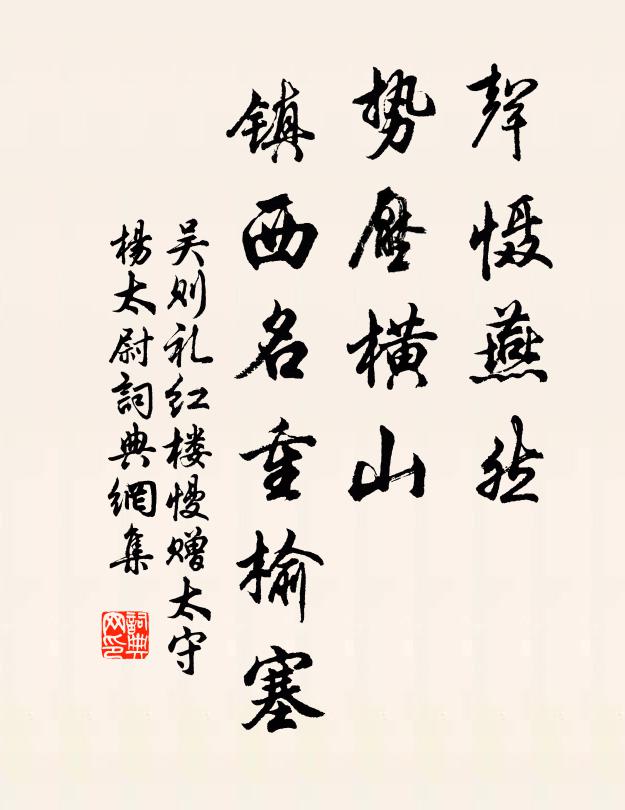 聲慑燕然
势壓横山
镇西名重榆塞
吴则礼红楼慢赠太守
楊太尉詞典網集
詞典网印